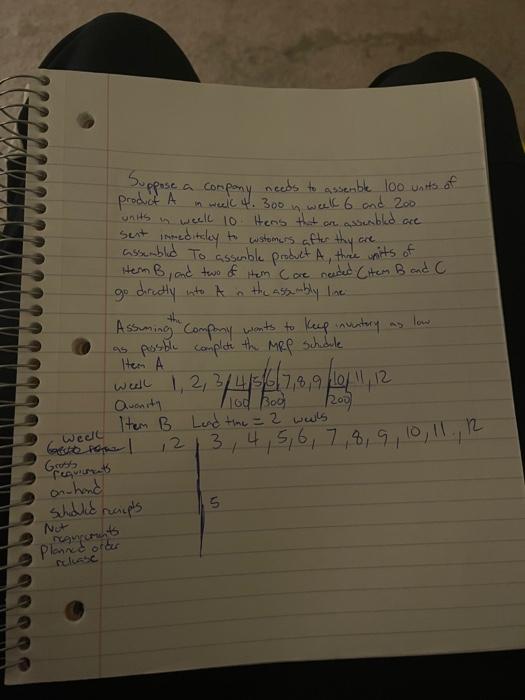 Suppose a company needs to assemble 100 units of
product A in week 4. 300 in week 6 and 200
units in week 10. Items that are assembled are
sent immeditcley to customers after thy are
assembled To assemble product A, three units of
item B, and two of item C are needed (item B and C
go directly into A in the assembly line
Assuming the Company wants to keep inventory as low
as possble complete the MRP schedule
Item A
week 1, 2, 3, 4, 5, 6, 7, 8, 9, 10, 11, 12
Quanity 100 300 200
Item B Lead time = 2 weeks
week 1, 2 3, 4, 5, 6, 7, 8, 9, 10, 11, 12
Gross
requirments
on-hand
scheduled receipts 5
Net
requirments
Planned order
release